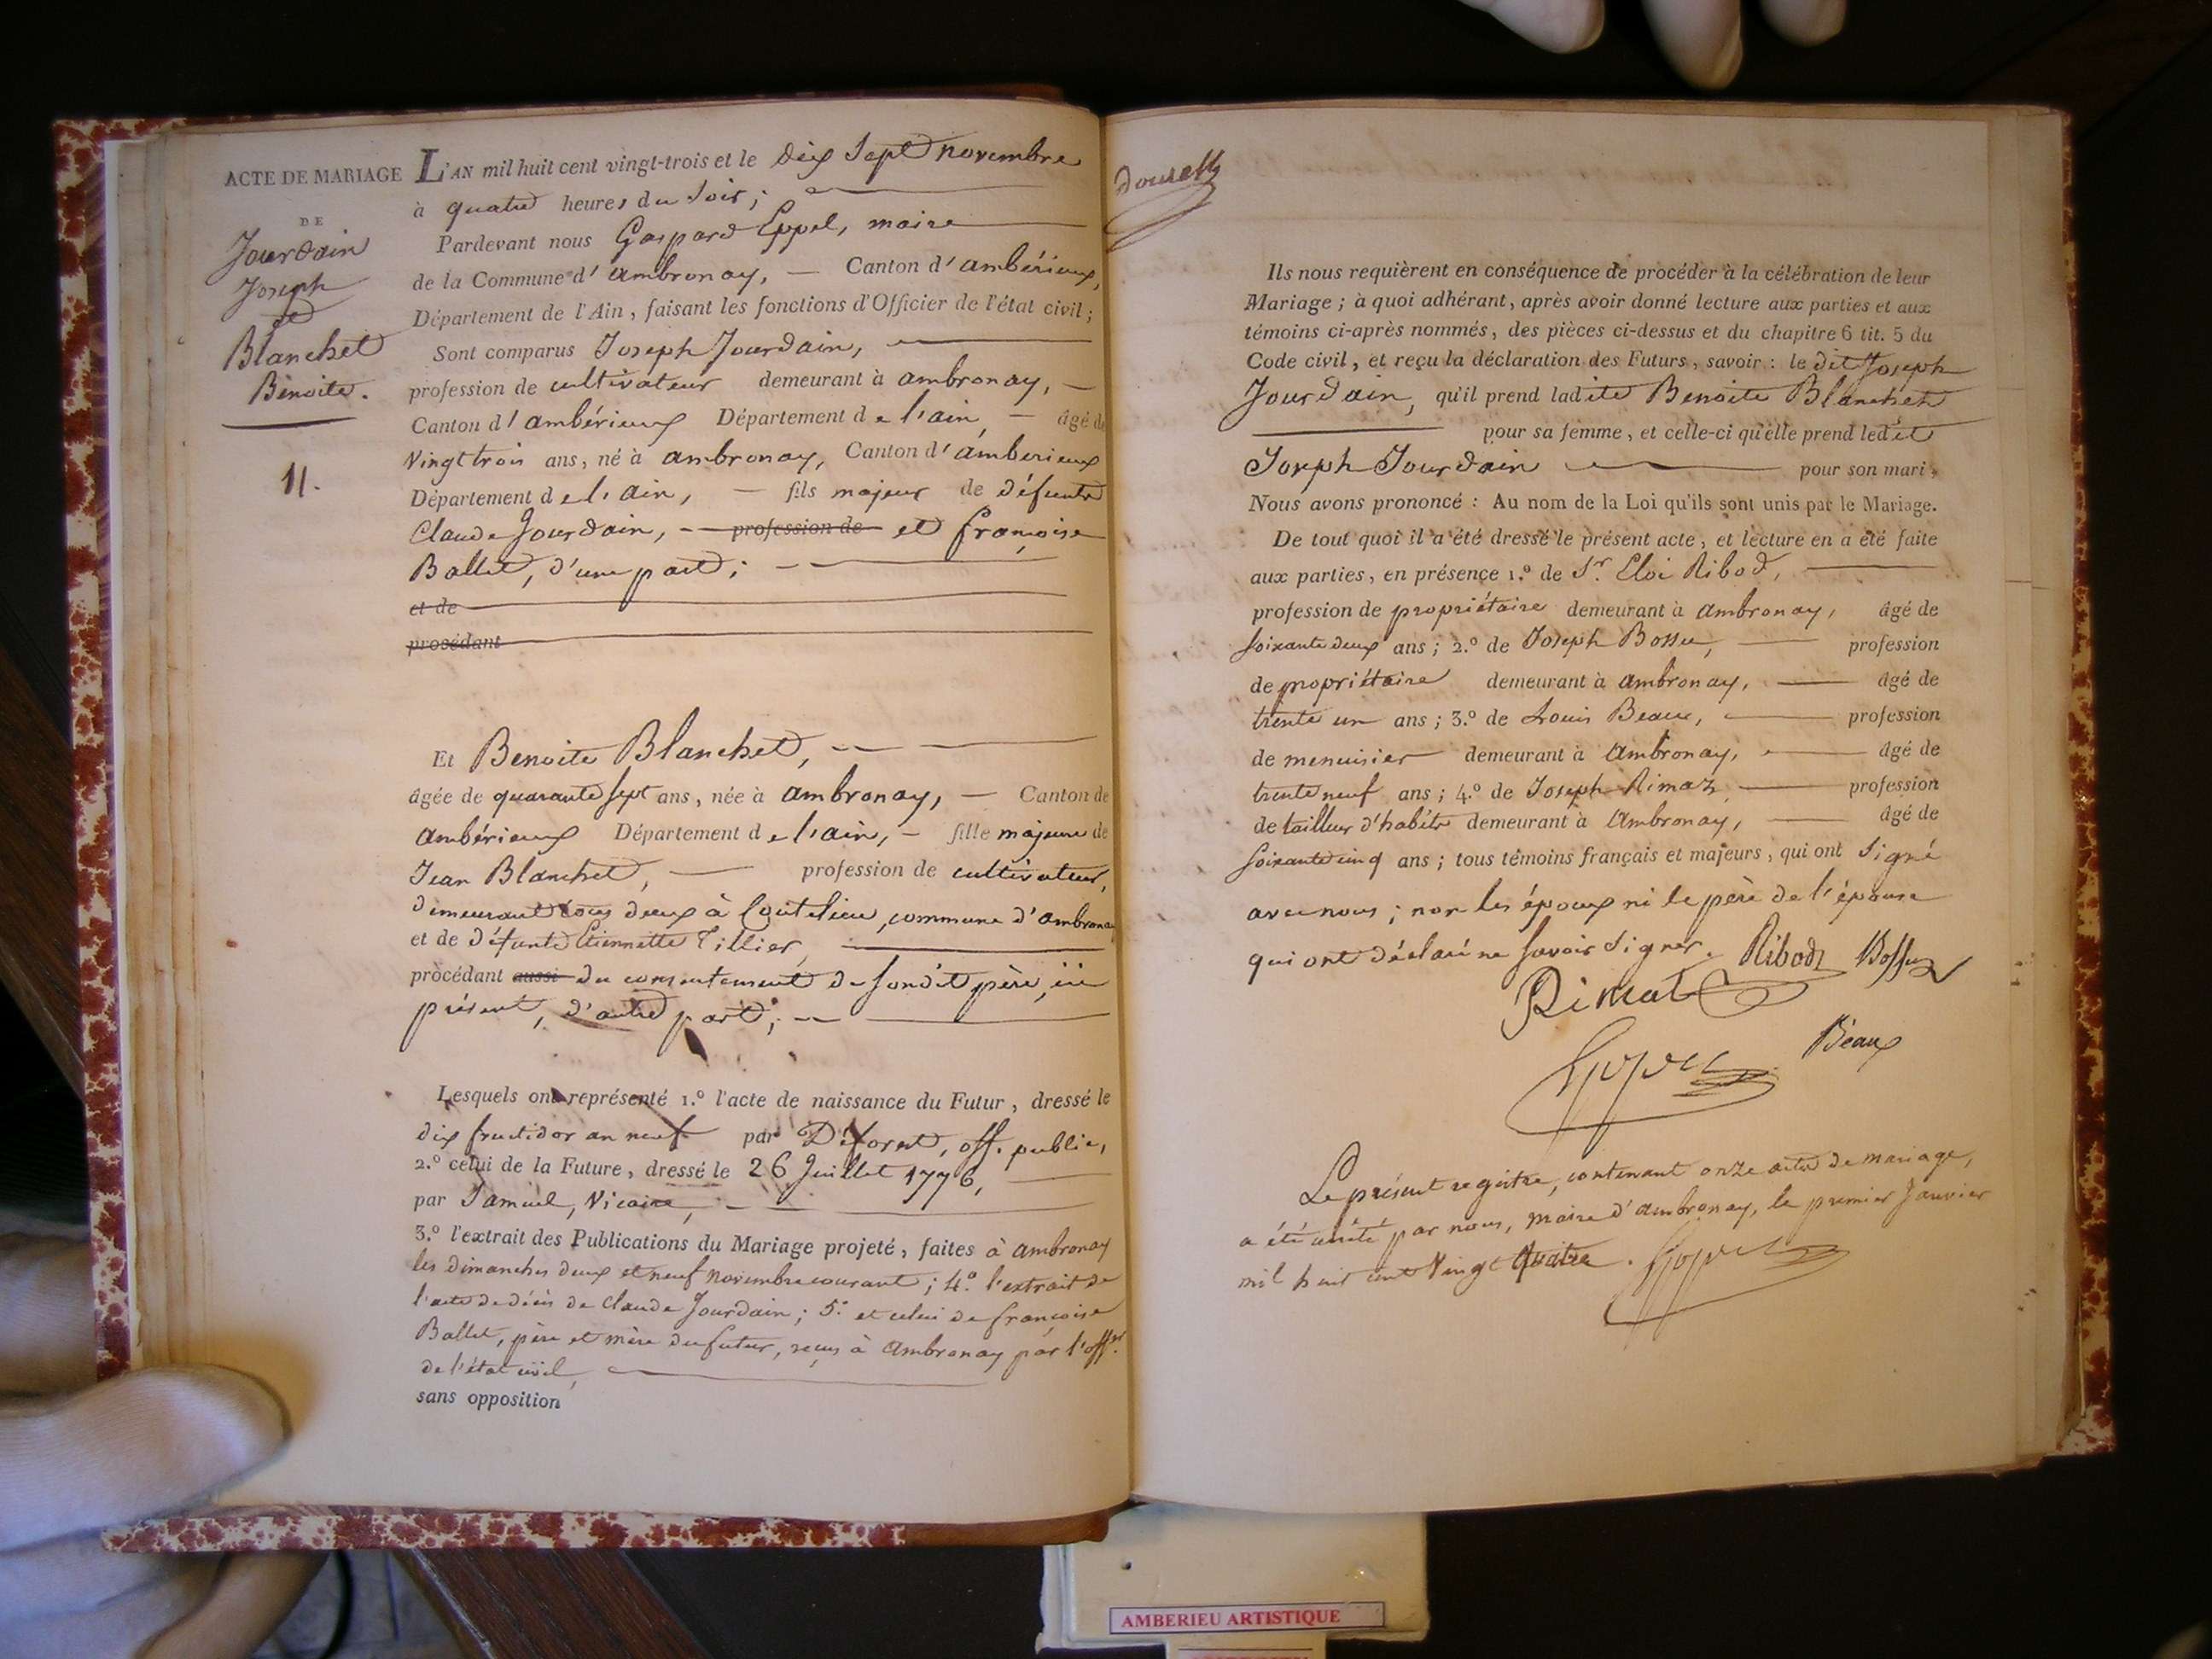 ACTE DE MARIAGE
DE
Jourdain
Joseph
et
Blanchet
Benoite.
11.
L'AN mil huit cent vingt-trois et le dix Sept novembre
à quatre heures du Soir;
Pardevant nous Gaspard Eppel, maire
de la Commune d'ambronay, — Canton d'ambérieux,
Département de l'Ain, faisant les fonctions d'Officier de l'état civil;
Sont comparus Joseph Jourdain,
profession de cultivateur demeurant à ambronay, —
Canton d'ambérieux Département de l'ain, — âgé de
Vingt trois ans, né à ambronay, Canton d'amberieux
Département de l'Ain, — fils majeur de défunts
Claude Jourdain, — profession de et françoise
Ballet, d'une part; —
et de
procédant
Et Benoite Blanchet,
âgée de quarante sept ans, née à ambronay, — Canton de
ambérieux Département de l'ain, — fille majeure de
Jean Blanchet, — profession de cultivateur,
demeurant tous deux à Coutelieu, commune d'ambronay
et de défunte Etiennette Tillier,
procédant aussi du consentement de Sondit père, ici
présent, d'autre part; —
Lesquels ont représenté 1.º l'acte de naissance du Futur, dressé le
dix fructidor an neuf par Déforest, off. public,
2.º celui de la Future, dressé le 26 Juillet 1776,
par Samuel, Vicaire, —
3.º l'extrait des Publications du Mariage projeté, faites à ambronay
les dimanches deux et neuf novembre courant; 4.º l'extrait de
l'acte de décès de Claude Jourdain; 5.º et celui de françoise
Ballet, père et mère du futur, reçus à Ambronay par l'offr.
de l'état civil,
sans opposition
Ils nous requièrent en conséquence de procéder à la célébration de leur
Mariage; à quoi adhérant, après avoir donné lecture aux parties et aux
témoins ci-après nommés, des pièces ci-dessus et du chapitre 6 tit. 5 du
Code civil, et reçu la déclaration des Futurs, savoir: le dit Joseph
Jourdain, qu'il prend ladite Benoite Blanchet
pour sa femme, et celle-ci qu'elle prend ledit
Joseph Jourdain pour son mari;
Nous avons prononcé: Au nom de la Loi qu'ils sont unis par le Mariage.
De tout quoi il a été dressé le présent acte, et lecture en a été faite
aux parties, en présence 1.º de Sr. Eloi Ribod,
profession de propriétaire demeurant à ambronay, âgé de
soixante deux ans; 2.º de Joseph Bossu, profession
de propriétaire demeurant à ambronay, âgé de
trente un ans; 3.º de Louis Beaux, profession
de menuisier demeurant à Ambronay, âgé de
trente neuf ans; 4.º de Joseph Rimaz, profession
de tailleur d'habits demeurant à Ambronay, âgé de
soixante cinq ans; tous témoins français et majeurs, qui ont Signé
avec nous; non les époux ni le père de l'épouse
qui ont déclaré ne savoir Signer. Ribod Bossu
Rimat
Beaux
Eppel
Le présent registre, contenant onze actes de mariage,
a été arrêté par nous, maire d'ambronay, le premier Janvier
mil huit cent Vingt Quatre. Eppel
AMBERIEU ARTISTIQUE